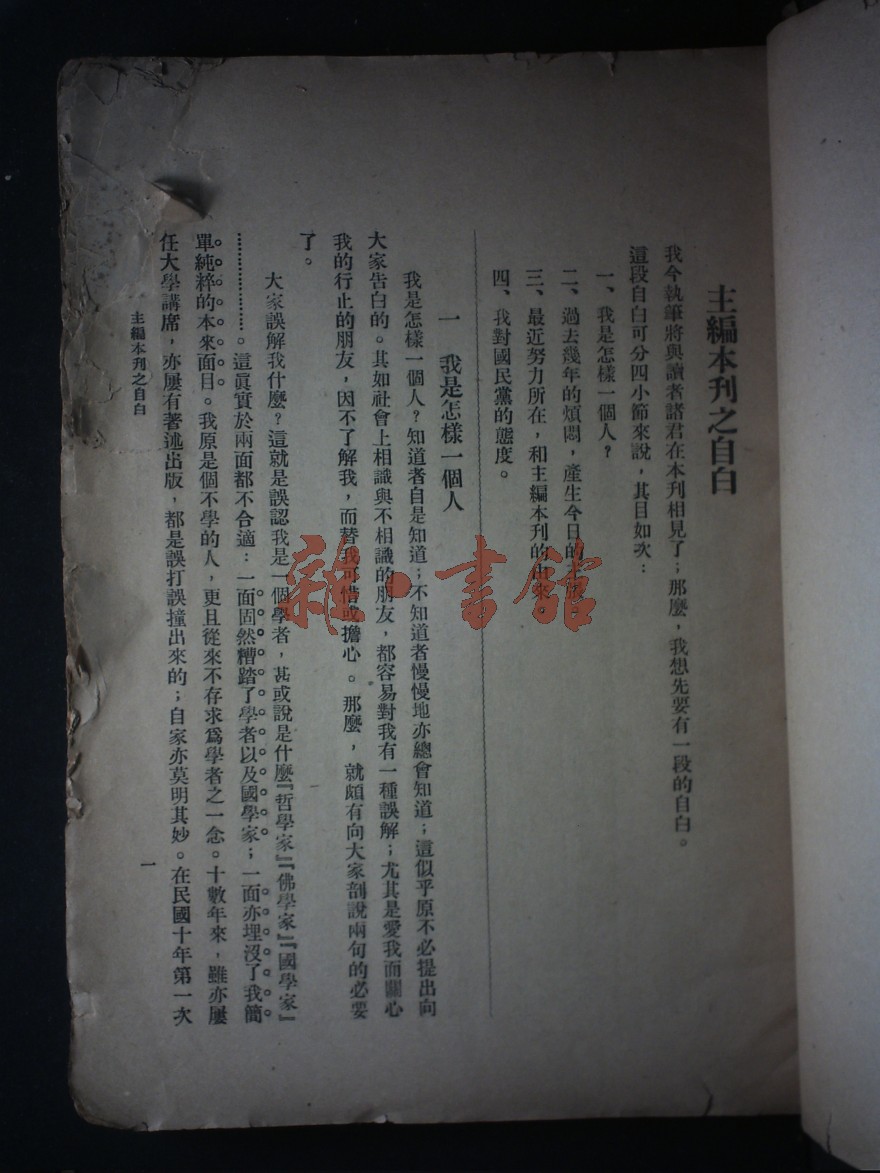 主編本刊之自白
我今執筆將與讀者諸君在本刊相見了；那麼，我想先要有一段的自白。
這段自白可分四小節來說，其目如次：
一、我是怎樣一個人？
二、過去幾年的煩悶，產生今日的
三、最近努力所在，和主編本刊的由來
四、我對國民黨的態度。
一　我是怎樣一個人
我是怎樣一個人？知道者自是知道；不知道者慢慢地亦總會知道；這似乎原不必提出向
大家告白的。其如社會上相識與不相識的朋友，都容易對我有一種誤解；尤其是愛我而關心
我的行止的朋友，因不了解我，而替我可惜或擔心。那麼，就頗有向大家剖說兩句的必要
了。
大家誤解我什麼？這就是誤認我是一個學者，甚或說是什麼『哲學家』『佛學家』『國學家』
………………。這眞實於兩面都不合適：一面固然糟踏了學者以及國學家；一面亦埋沒了我簡
單純粹的本來面目。我原是個不學的人，更且從來不存求爲學者之一念。十數年來，雖亦屢
任大學講席，亦屢有著述出版，都是誤打誤撞出來的；自家亦莫明其妙。在民國十年第一次
主編本刊之自白
一
雜·書館